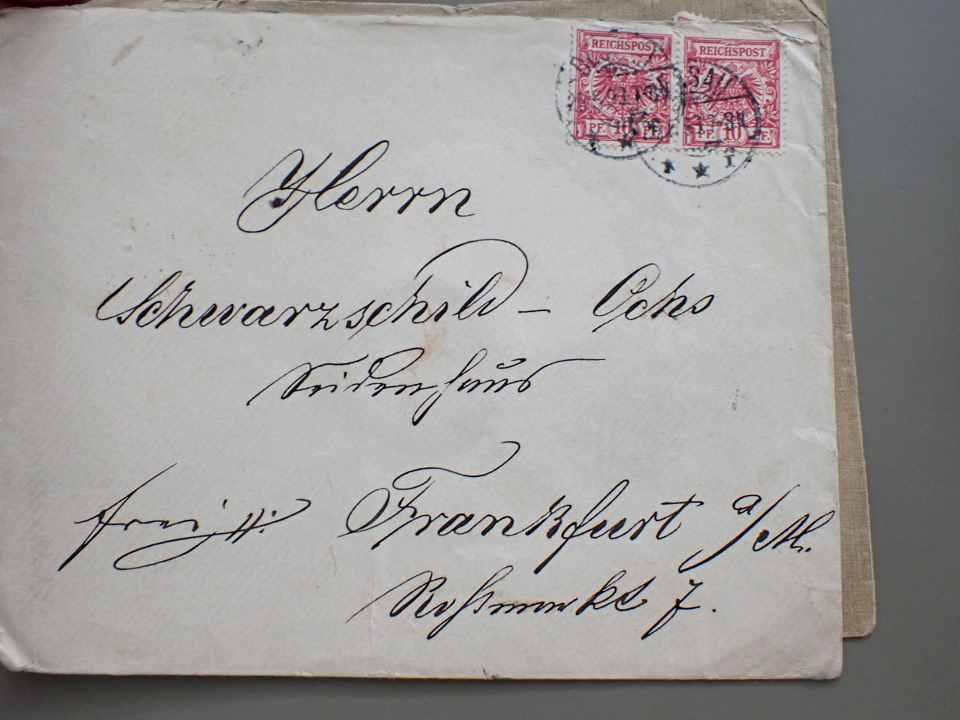 REICHSPOST REICHSPOST
PF. 10 PF. PF. 10 PF.
Herrn
Schwarzschild - Ochs
Seidenhaus
frei
Frankfurt a/M.
Roßmarkt 7.